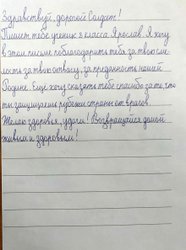 Здравствуй, дорогой Солдат!
Пишет тебе ученик 3 класса Ярослав. Я хочу
в этом письме поблагодарить тебя за твою сме-
лость за твою отвагу, за преданность нашей
Родине. Еще хочу сказать тебе спасибо за то, что
ты защищаешь рубежи страны от врагов.
Желаю здоровья, удачи! Возвращайся домой
живым и здоровым!